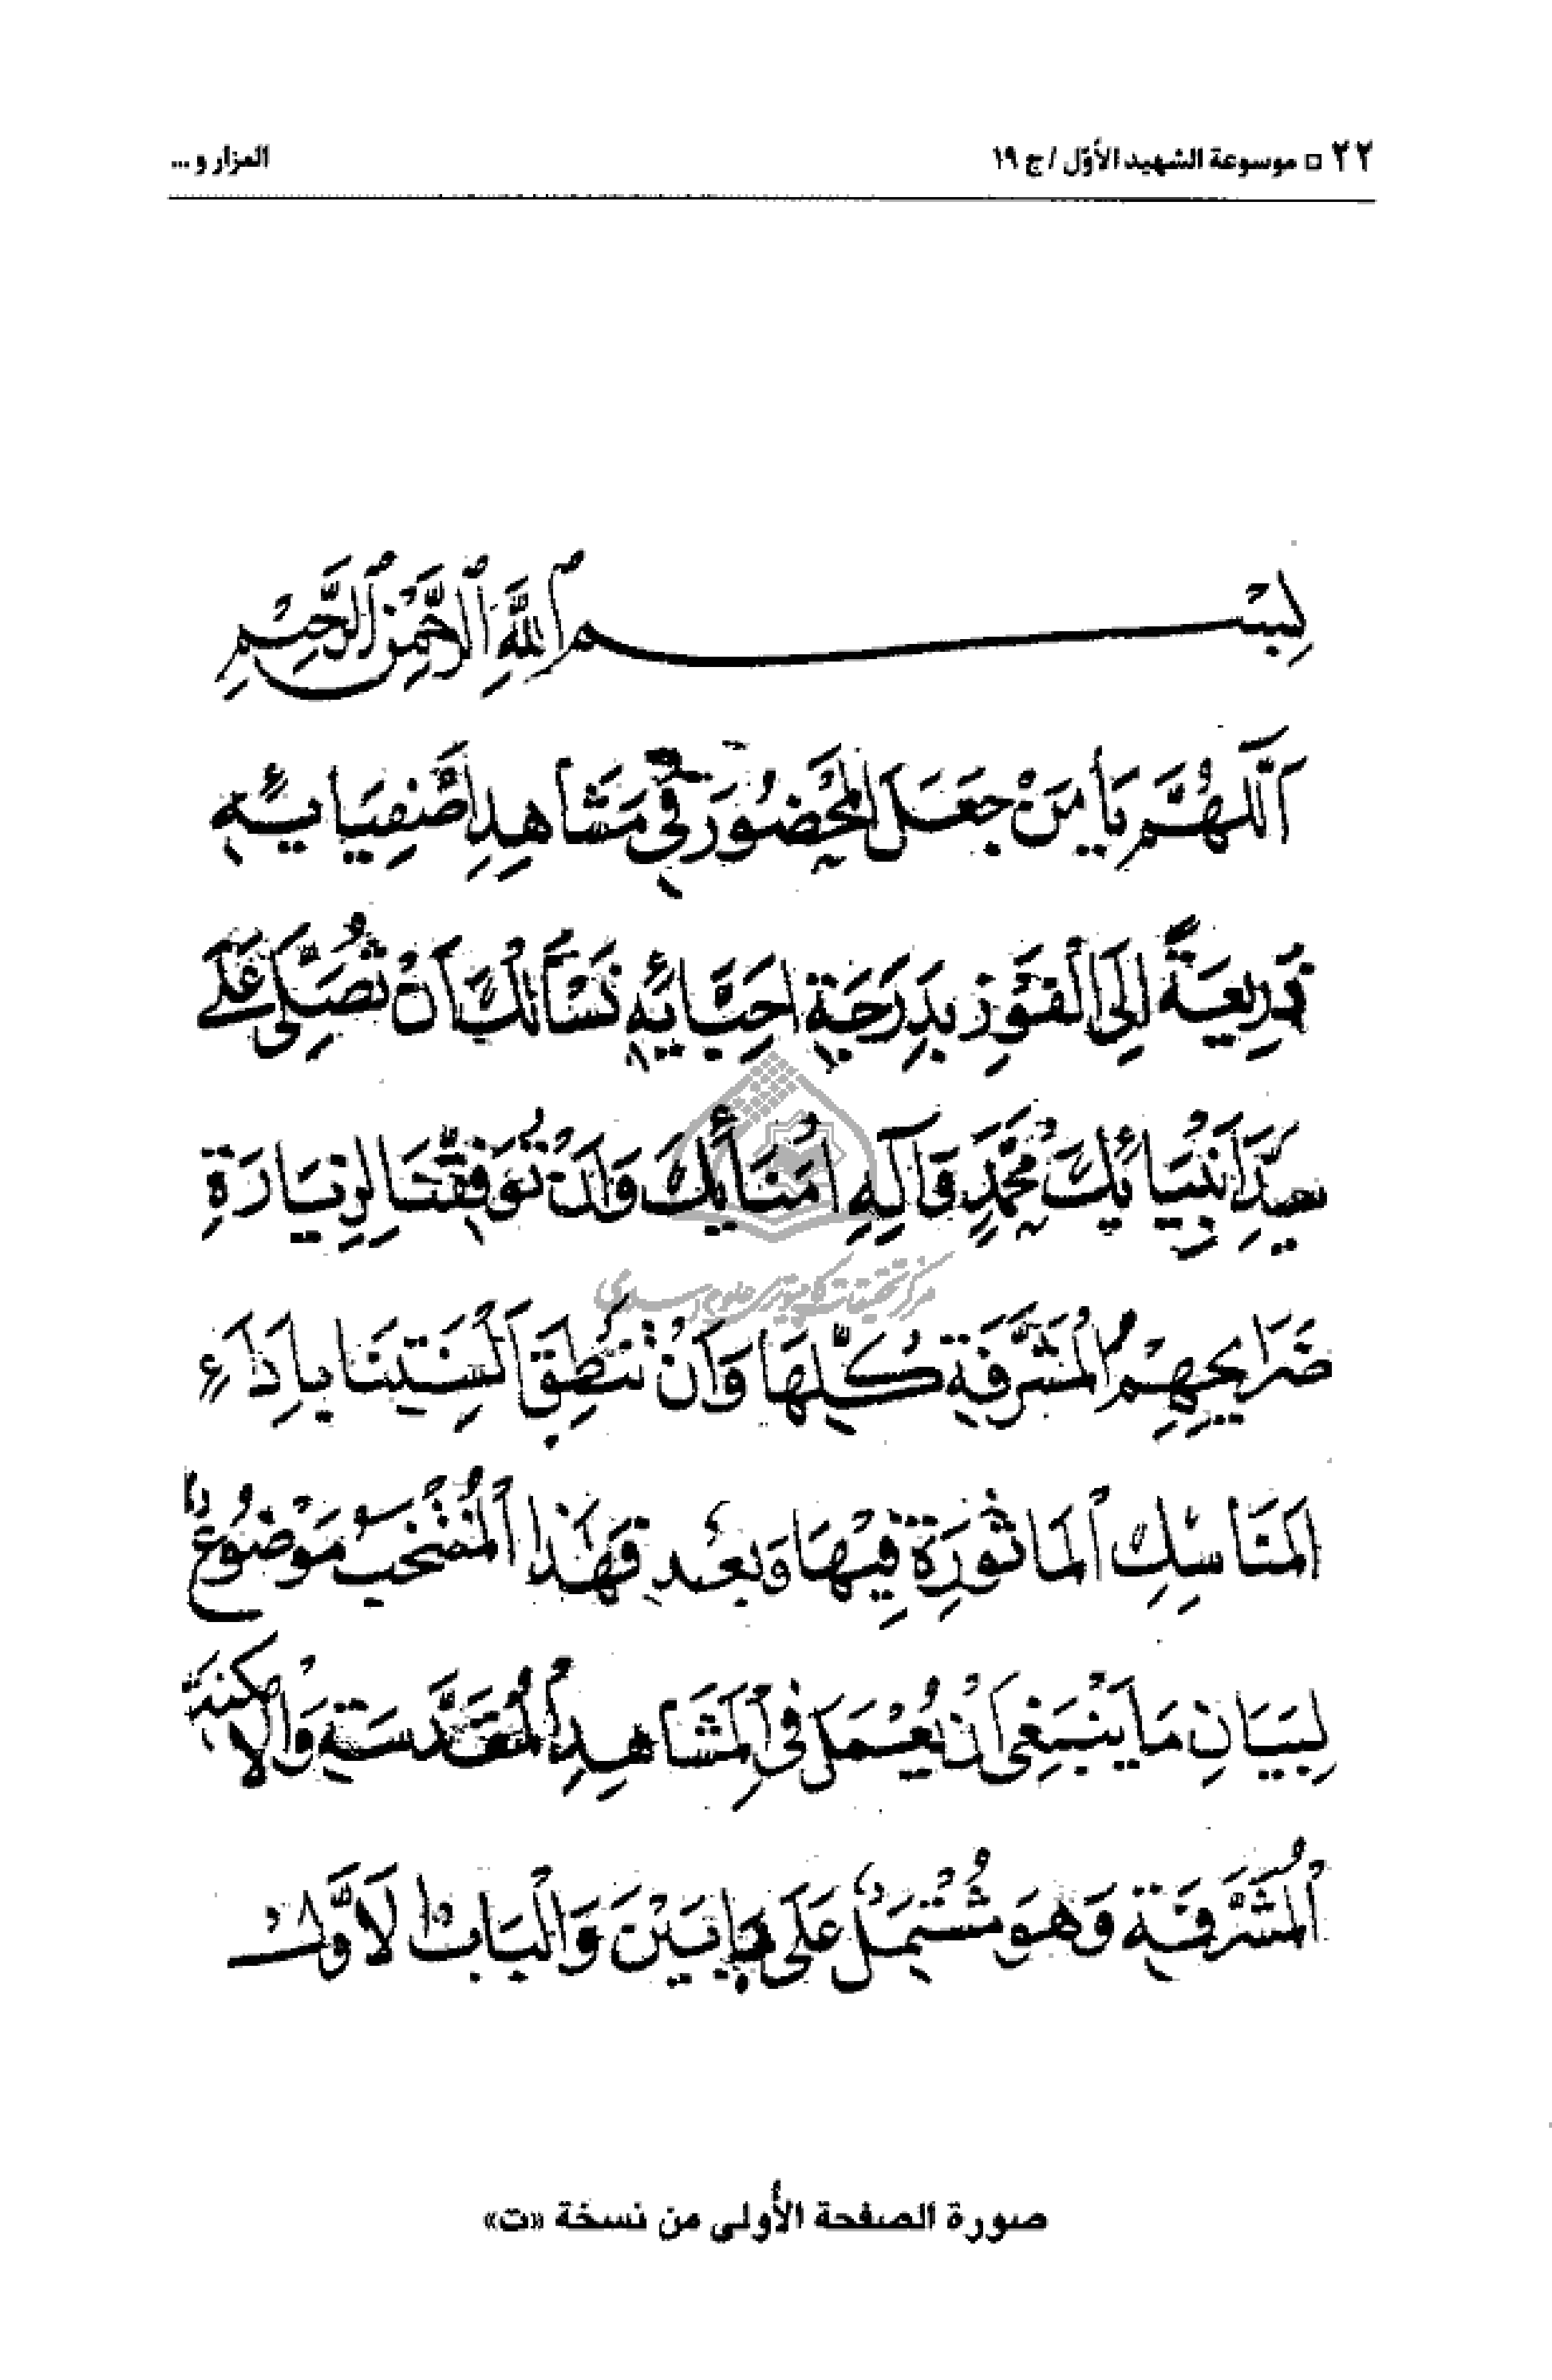 ٢٢ □ موسوعة الشهيد الأوّل / ج ١٩
المزار و ...
بِسْمِ اللَّهِ الرَّحْمٰنِ الرَّحِيْمِ
اَللّٰهُمَّ يَا مَنْ جَعَلَ الْحُضُوْرَ فِي مَشَاهِدِ أَصْفِيَائِهِ
ذَرِيعَةً إِلَى الْفَوْزِ بِدَرَجَةِ اَحِبَّائِهِ نَسْأَلُكَ أَنْ تُصَلِّيَ عَلَى
سَيِّدِ أَنْبِيَائِكَ مُحَمَّدٍ وَآلِهِ اُمَنَائِكَ وَاَنْ تُوَفِّقَنَا لِزِيَارَةِ
ضَرَايِحِهِمُ الْمُشَرَّفَةِ كُلِّهَا وَاَنْ تُنْطِقَ اَلْسِنَتِنَا بِاَدَاءِ
الْمَنَاسِكِ الْمَاثُورَةِ فِيْهَا وَبَعْد فَهٰذَا الْمُنْتَخَبُ مَوْضُوعٌ
لِبَيَانِ مَا يَنْبَغِي اَنْ يُعْمَلَ فِي الْمَشَاهِدِ الْمُقَدَّسَةِ وَالْاَمْكِنَةِ
الْمُشَرَّفَةِ وَهُوَ مُشْتَمِلٌ عَلَى بَابَيْنَ وَالْبَابُ الْاَوَّلُ
مرکز تحقیقات کامپیوتری علوم اسلامی
صورة الصفحة الأُولى من نسخة «ت»